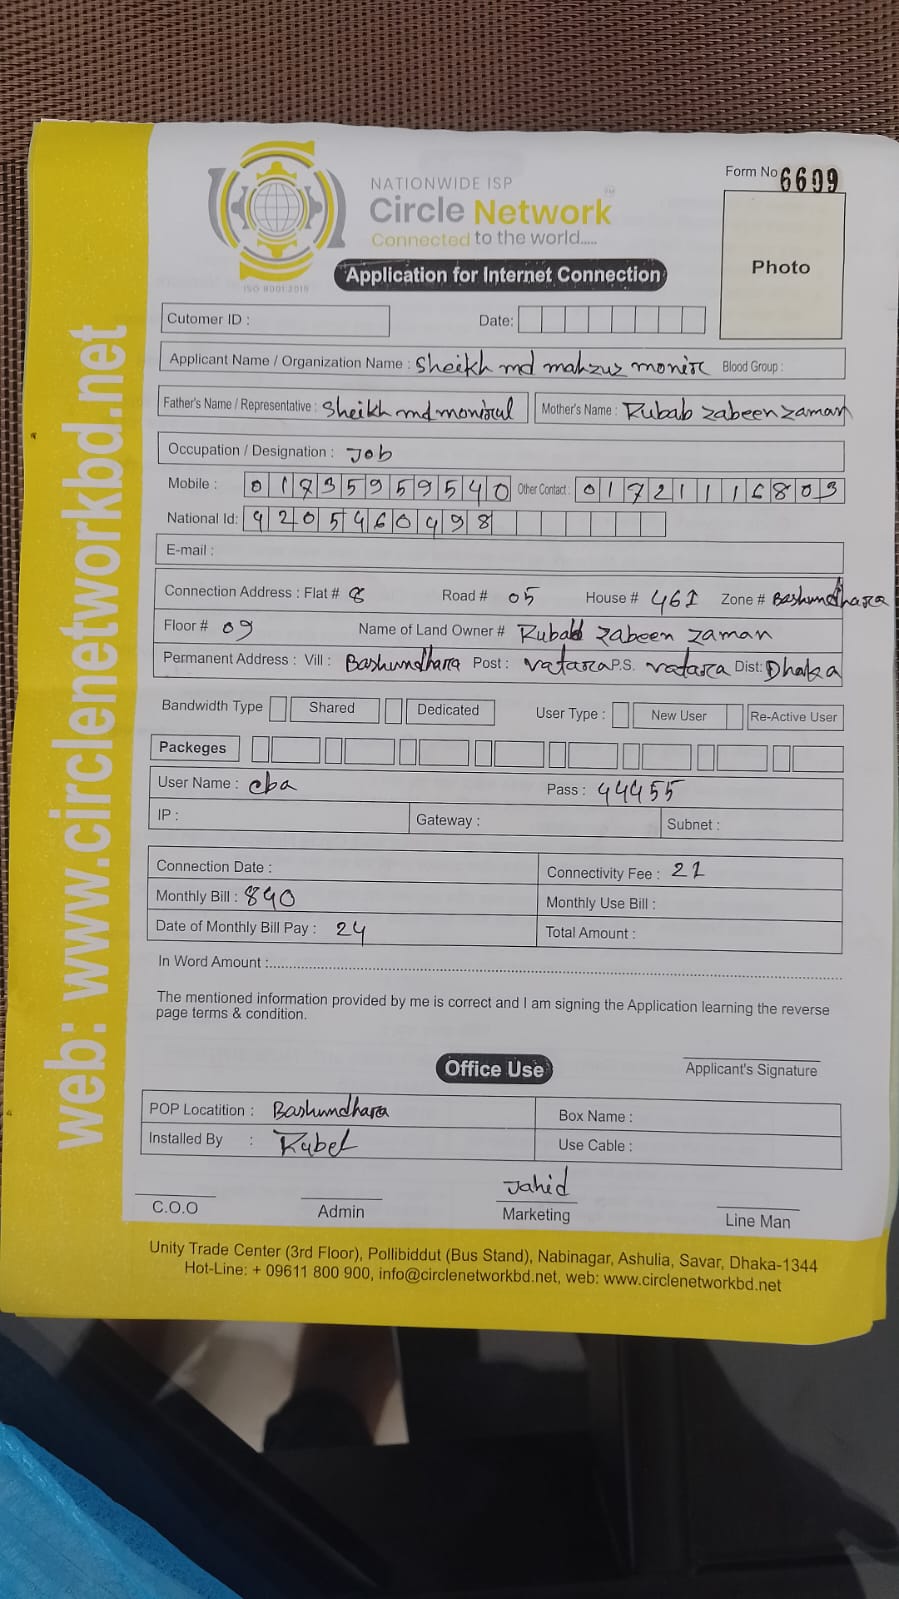 web: www.circlenetworkbd.net
NATIONWIDE ISP
Circle Network TM
Connected to the world.....
ISO 9001:2015
Form No 6609
Photo
Application for Internet Connection
Cutomer ID :
Date:
Applicant Name / Organization Name : Sheikh md mahzuz monir Blood Group :
Father's Name / Representative : Sheikh md monirul Mother's Name : Rubab Zabeen Zaman
Occupation / Designation : Job
Mobile : 01835959540 Other Contact : 01721116803
National Id: 4205460498
E-mail :
Connection Address : Flat # 8 Road # 05 House # 461 Zone # Bashundhara
Floor # 09 Name of Land Owner # Rubab Zabeen Zaman
Permanent Address : Vill : Bashundhara Post : vatara P.S. vatara Dist: Dhaka
Bandwidth Type Shared Dedicated User Type : New User Re-Active User
Packeges
User Name : cba Pass : 44455
IP : Gateway : Subnet :
Connection Date : Connectivity Fee : 21
Monthly Bill : 840 Monthly Use Bill :
Date of Monthly Bill Pay : 24 Total Amount :
In Word Amount :
The mentioned information provided by me is correct and I am signing the Application learning the reverse
page terms & condition.
Office Use
Applicant's Signature
POP Locatition : Bashundhara Box Name :
Installed By : Rubel Use Cable :
Jahid
C.O.O Admin Marketing Line Man
Unity Trade Center (3rd Floor), Pollibiddut (Bus Stand), Nabinagar, Ashulia, Savar, Dhaka-1344
Hot-Line: + 09611 800 900, info@circlenetworkbd.net, web: www.circlenetworkbd.net